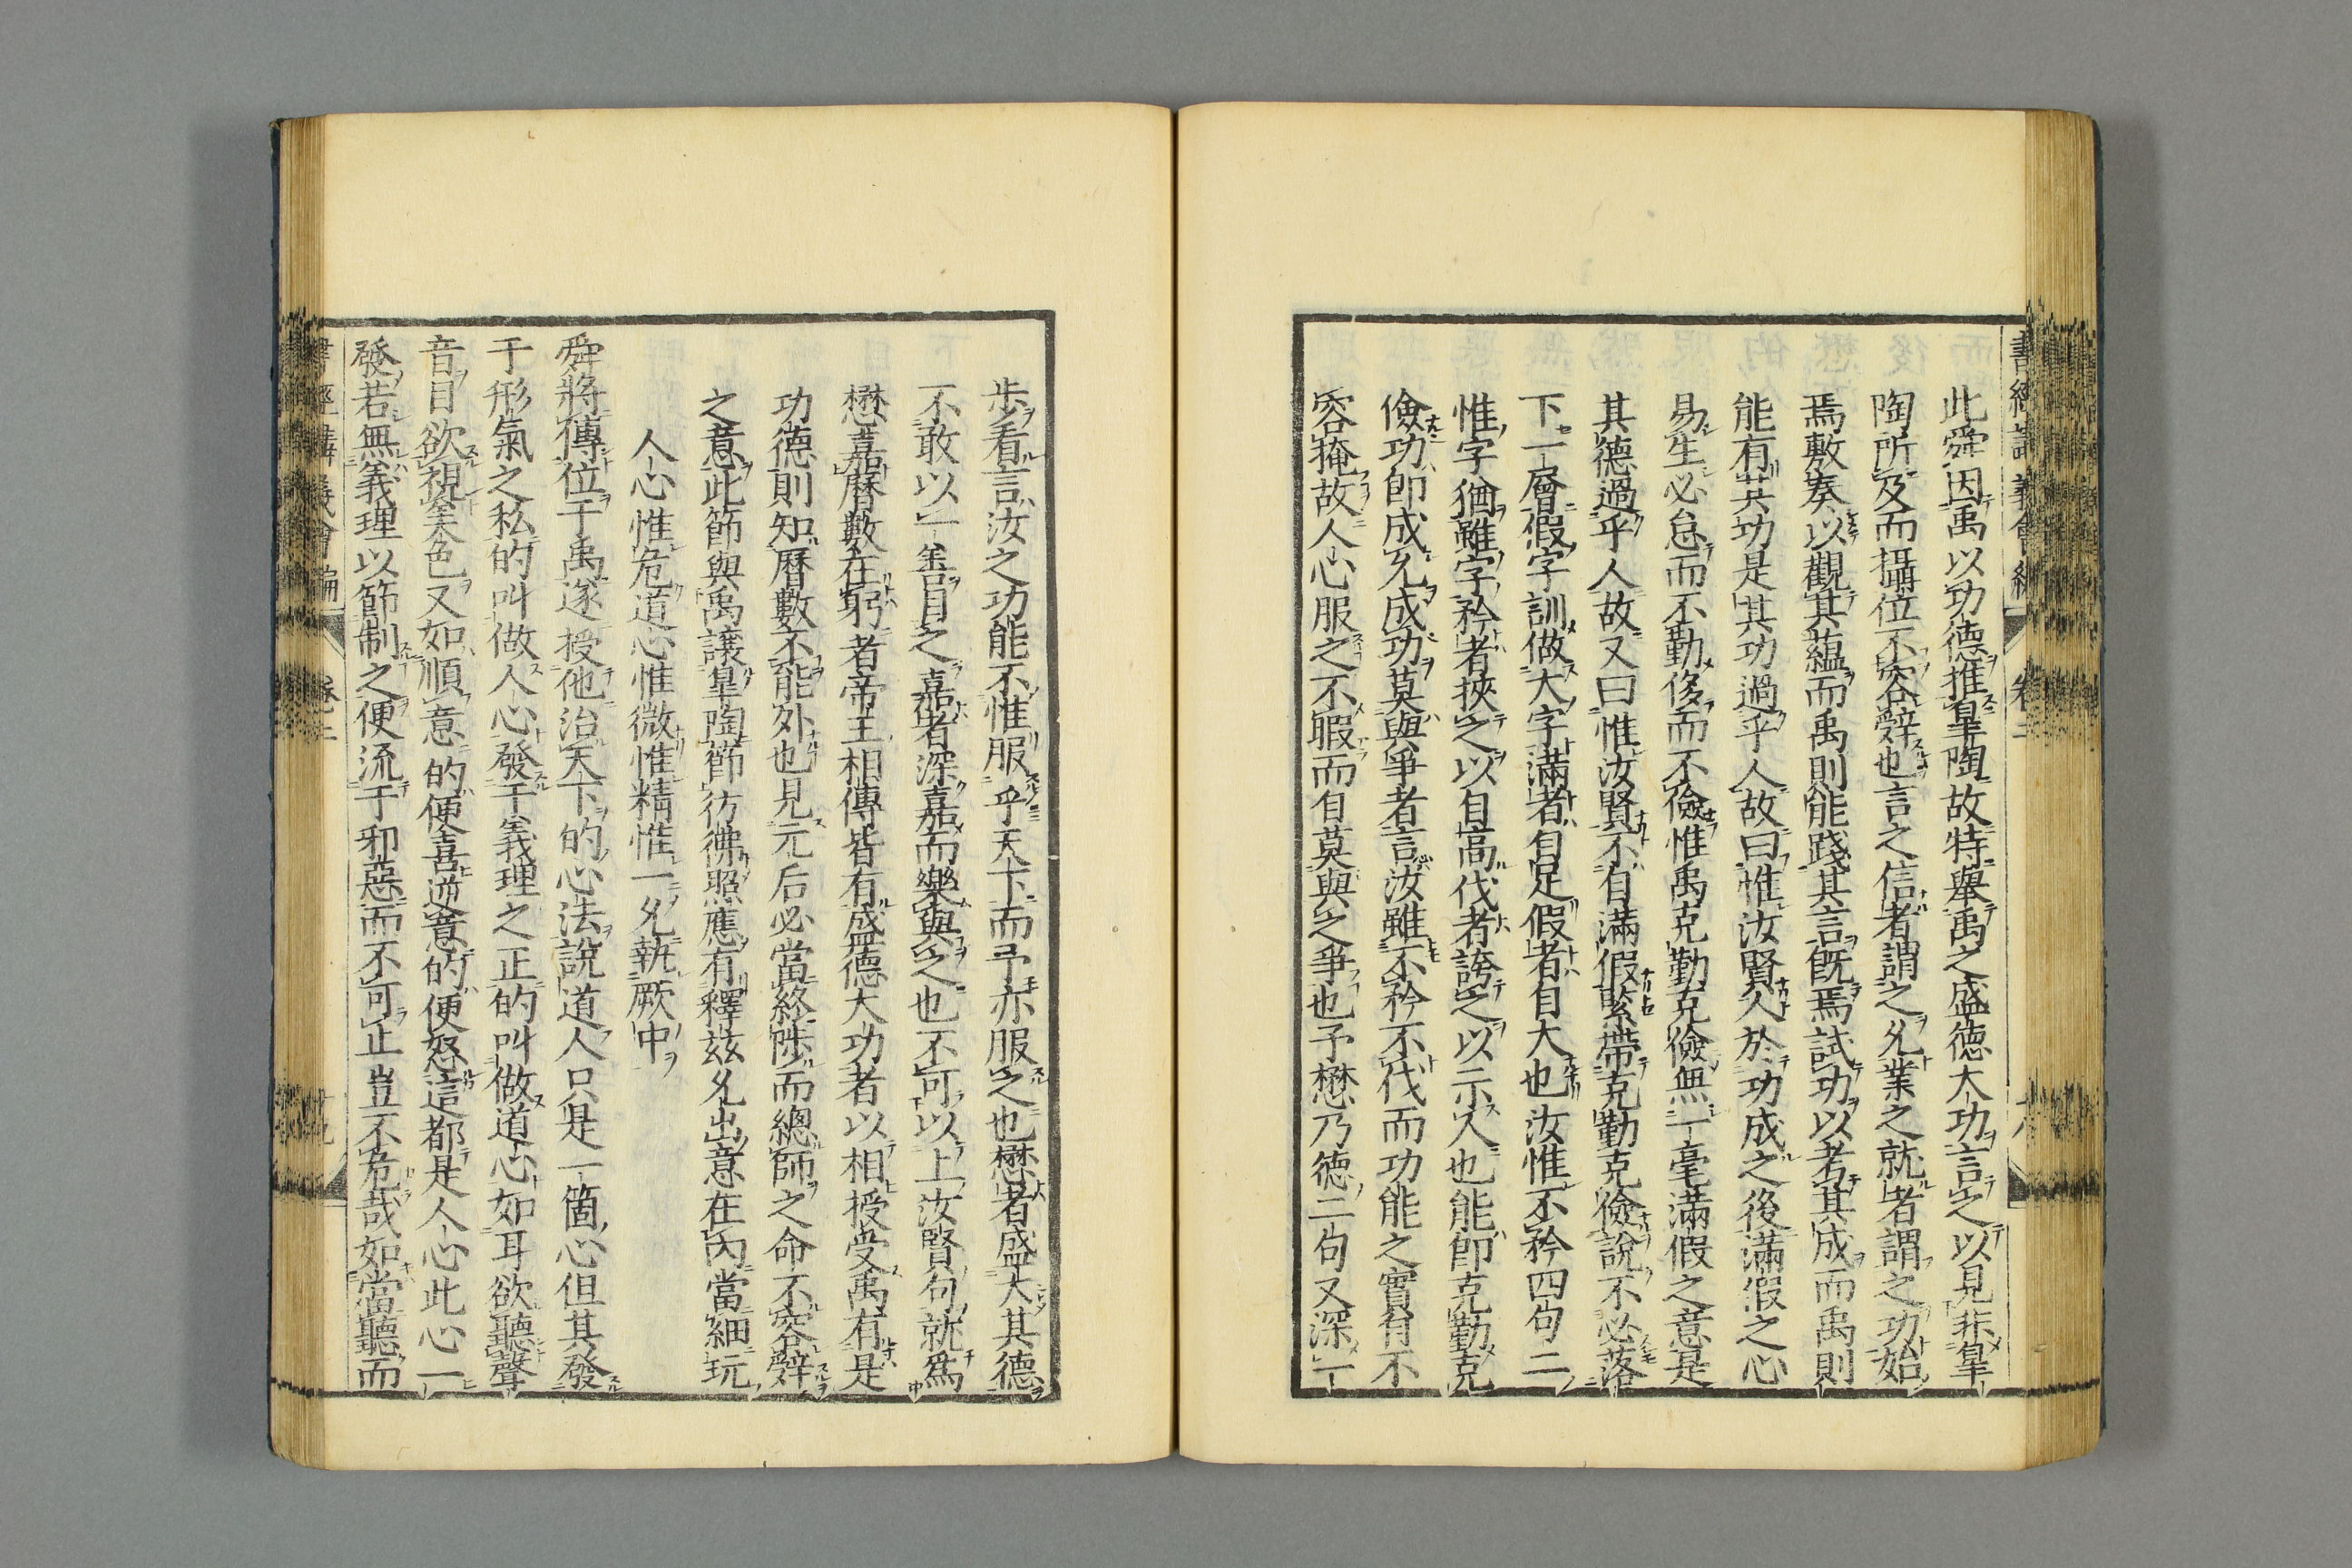 此舜因禹以功德推皐陶故特舉禹之盛徳大功言之以見非皐
陶所及而攝位不容辭也言之信者謂之允業之就者謂之功始
焉敷奏以觀其蘊而禹則能踐其言既焉試功以考其成而禹則
能有其功是其功過乎人故曰惟汝賢人於功成之後滿假之心
易生必怠而不勤侈而不儉惟禹克勤克儉無一毫滿假之意是
其德過乎人故又曰惟汝賢不自滿假緊帶克勤克儉說不必落
下一層假字訓做大字滿者自足假者自大也汝惟不矜四句二
惟字猶雖字矜者挾之以自高伐者誇之以示人也能即克勤克
儉功即成允成功莫與爭者言汝雖不矜不伐而功能之實自不
容掩故人心服之不暇而自莫與之爭也予懋乃德二句又深一
歩看言汝之功能不惟服乎天下而予亦服之也懋者盛大其德
不敢以一善目之嘉者深嘉而樂與之也不可以上汝賢句就爲
懋嘉曆數在躬者帝王相傳皆有盛德大功者以相授受禹有是
功德則知曆數不能外也見元后必當終陟而總師之命不容辭
之意此節與禹讓皐陶節彷彿照應有釋茲允出意在内當細玩
人心惟危道心惟微惟精惟一允執厥中
舜將傳位于禹遂授他治天下的心法說道人只是一箇心但其發
于形氣之私的叫做人心發于義理之正的叫做道心如耳欲聽聲
音目欲視釆色又如順意的便喜逆意的便怒這都是人心此心一
發若無義理以節制之便流于邪惡而不可止豈不危哉如當聽而
書經講義會編 卷二